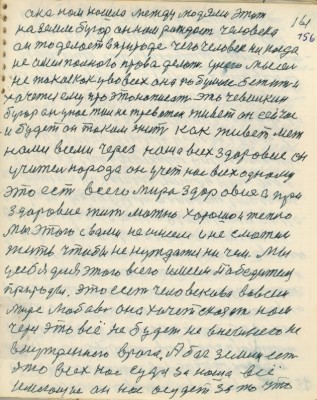 она нам нашла между людями этот
161
156
на земли бугор он нам рождает человека
он то делает в природе чего человек никогда
не имел полного права делать у него мысел
не такая как у всех она по бумаге
хочется ему про это написать это чевилкин
бугор он упас там не тревожит живет он сейчас
и будет он таким жить как живет меж
нами всеми через наше всех здоровие он
учител народа он учет нас всех одному
это ест всего мира здоровия а при
здоровие жит можно хорошо и тепло
мы этого с вами не имеем и не смогли
жить чтобы не нуждатся ни чем. Мы
у себя для этого всего имеем Победителя
природы. это ест человекова во всем
мире любов она хочет сказать нам
через это всё не будет не внешнего не
внутреннего врага. А бог земли ест
это всех нас судя за наше всё
имеющие он нас осудет за то что